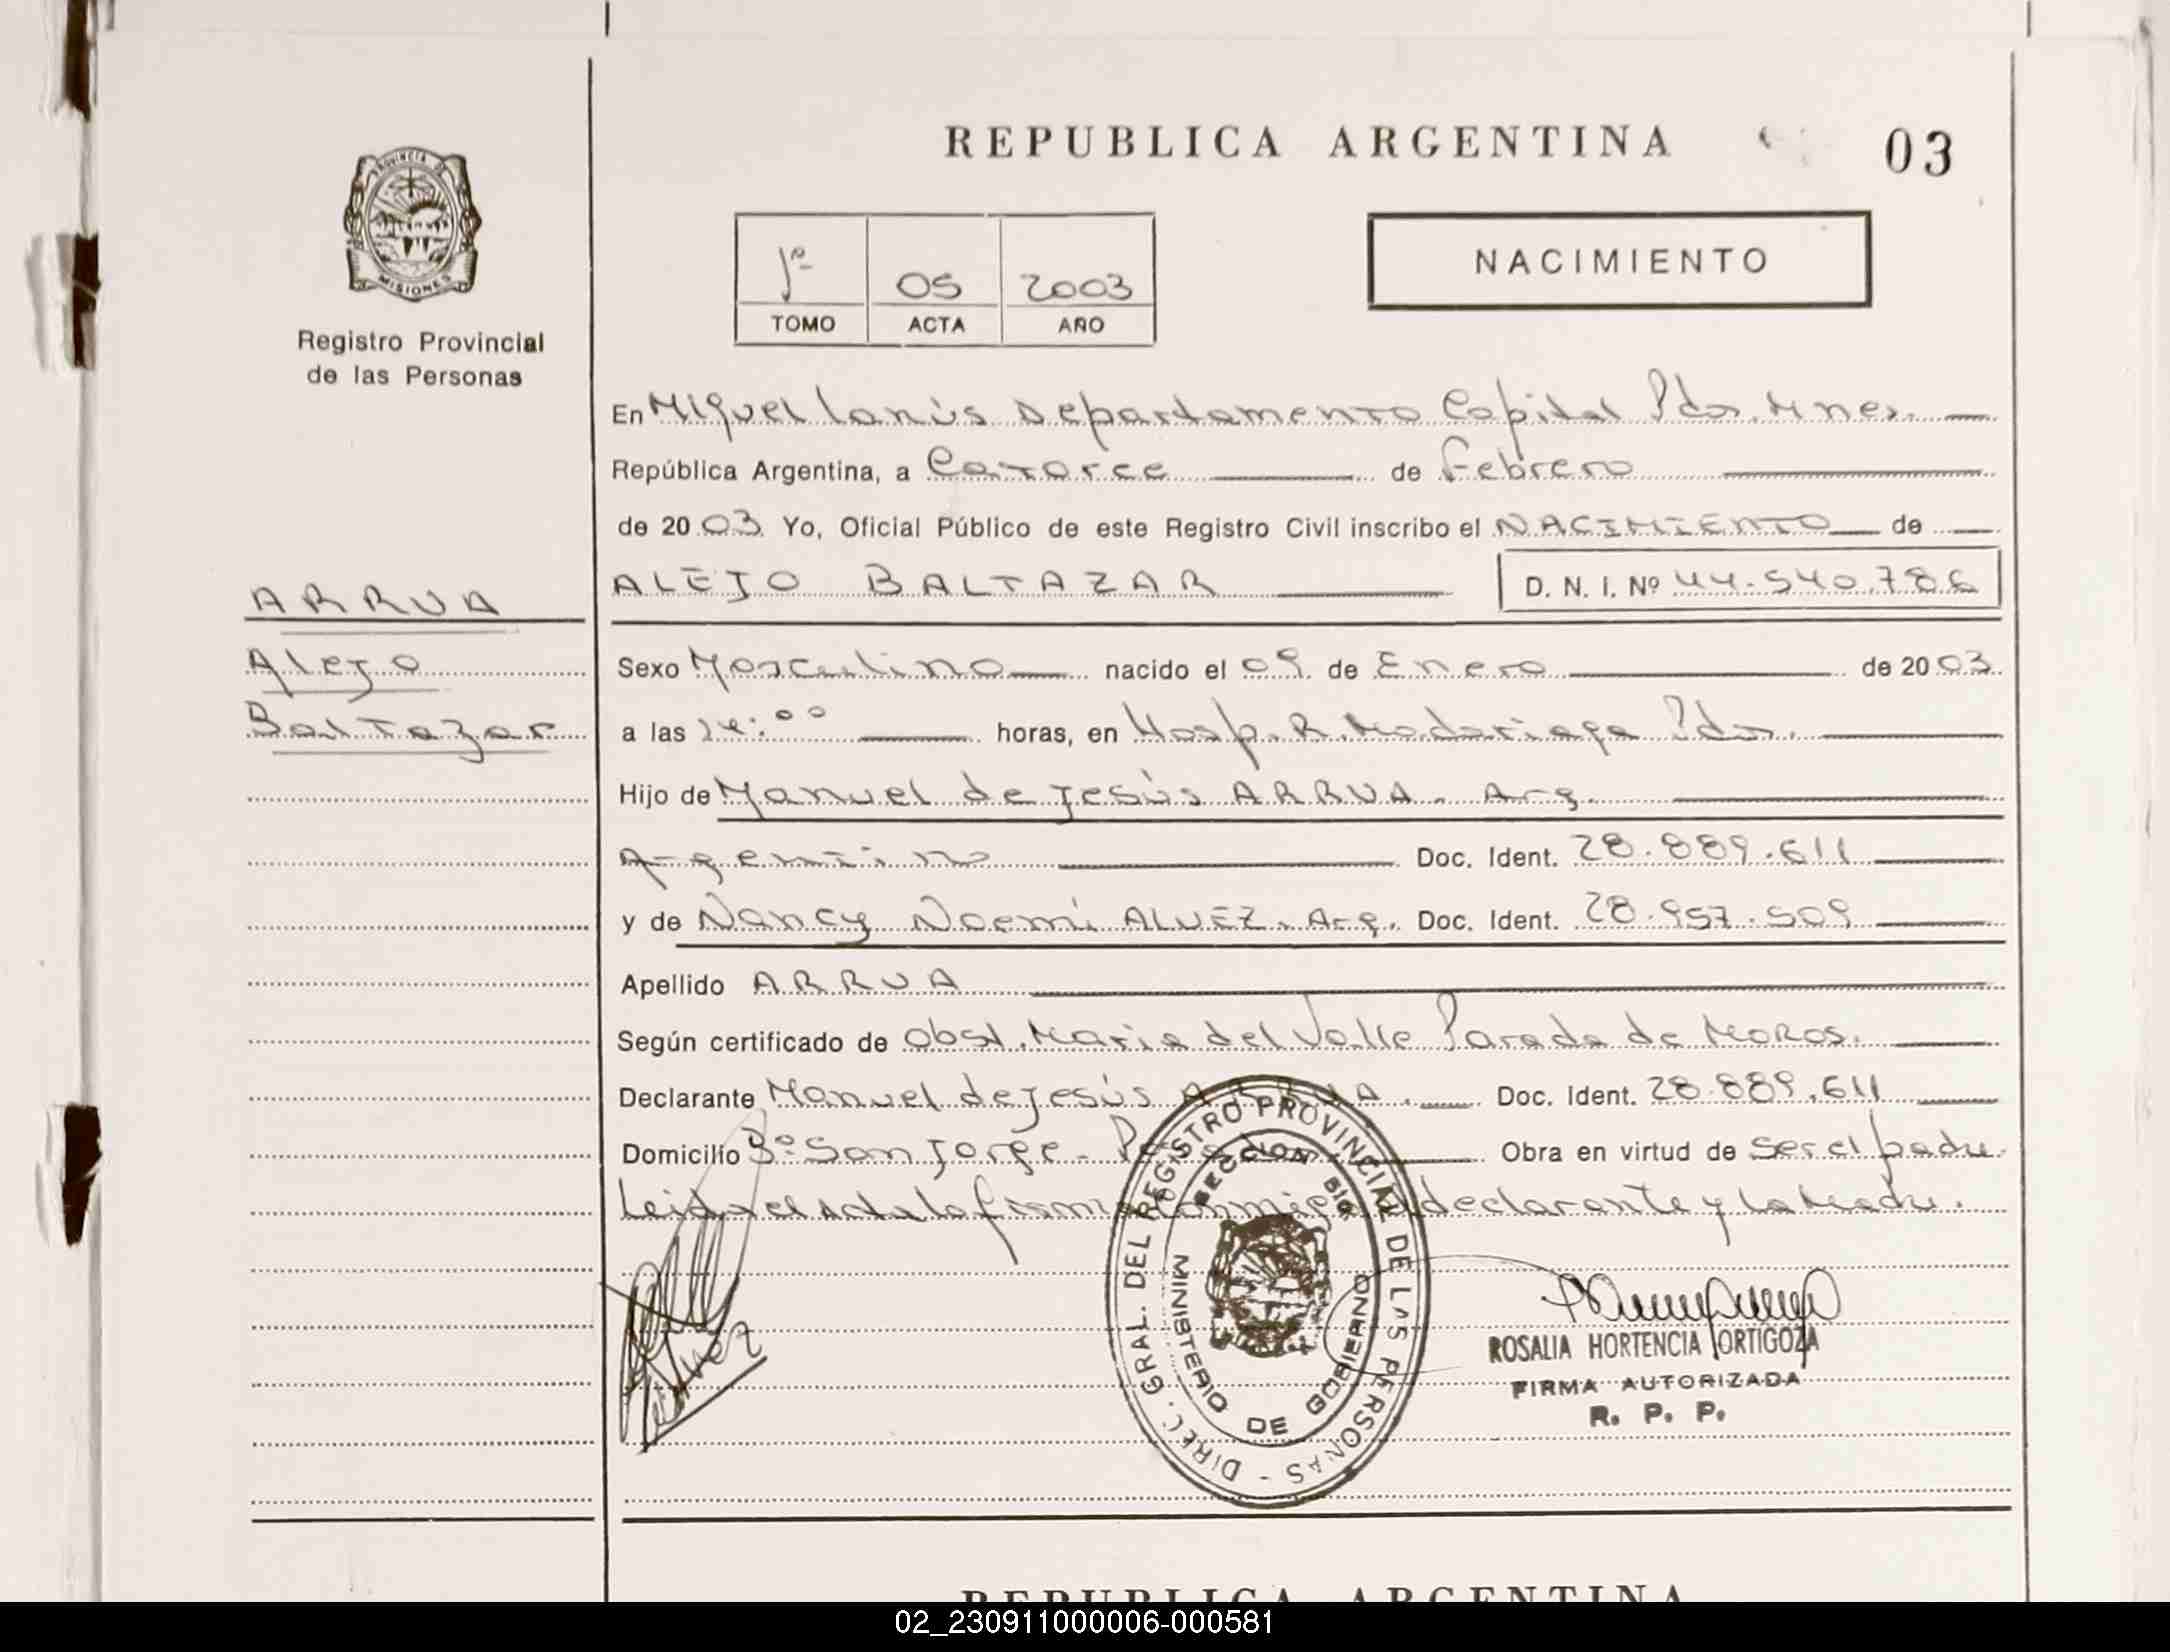 REPUBLICA ARGENTINA
03
PROVINCIA DE
MISIONES
Registro Provincial
de las Personas
1º 05 2003
TOMO ACTA AÑO
NACIMIENTO
En Miguel Lanús Departamento Capital Pdas. Mnes.
República Argentina, a Catorce de Febrero
de 2003 Yo, Oficial Público de este Registro Civil inscribo el NACIMIENTO de
ARRUA
ALEJO BALTAZAR D. N. I. Nº 44.540.786
Alejo
Sexo Masculino nacido el 09 de Enero de 2003
Baltazar
a las 14:00 horas, en Hosp. R. Madariaga Pdas.
Hijo de Manuel de Jesús ARRUA. Arg.
Argentino Doc. Ident. 28.889.611
y de Nancy Noemí ALVEZ. Arg. Doc. Ident. 28.957.509
Apellido ARRUA
Según certificado de Obst. Maria del Valle Parada de MOROS.
Declarante Manuel de Jesús ARRUA. Doc. Ident. 28.889.611
Domicilio Bº San Jorge - Obra en virtud de ser el padre
Leida el Acta la firma conmigo el declarante y la Madre.
DIREC. GRAL. DEL REGISTRO PROVINCIAL DE LAS PERSONAS
MINISTERIO DE GOBIERNO
ROSALIA HORTENCIA ORTIGOZA
FIRMA AUTORIZADA
R. P. P.
REPUBLICA ARGENTINA
02_230911000006-000581